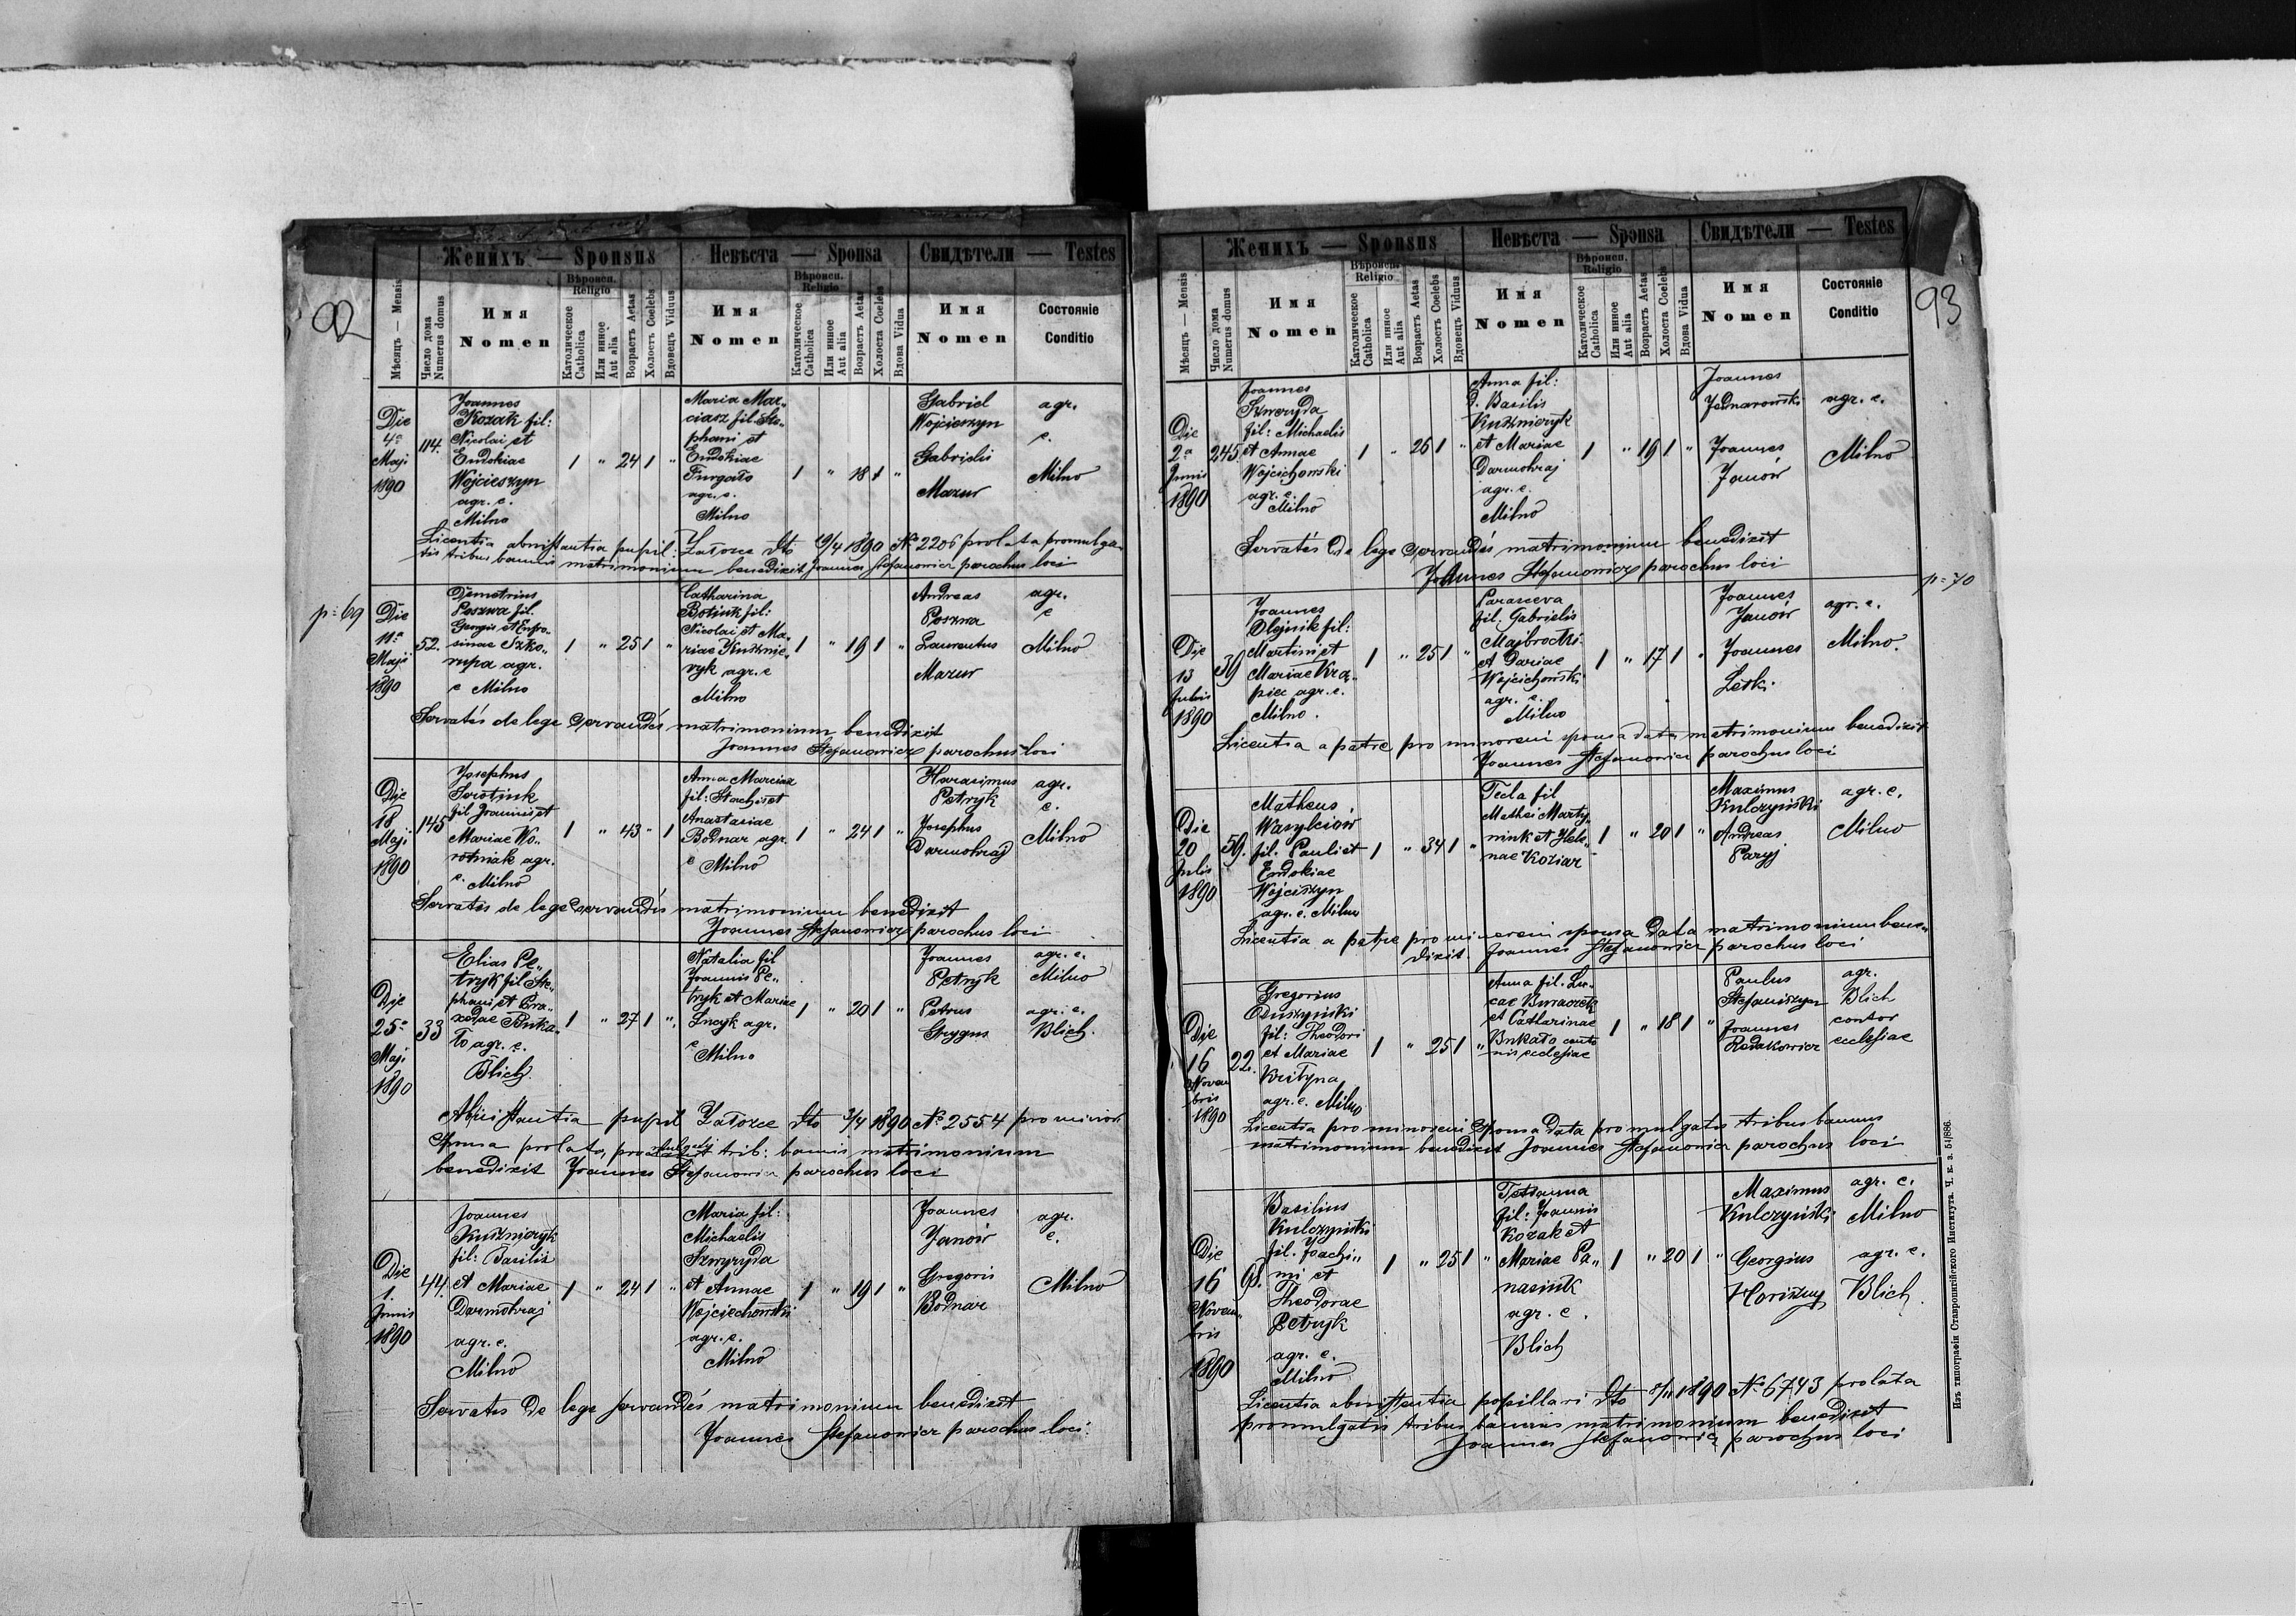 92
Женихъ — Sponsus
Невѣста — Sponsa
Свидѣтели — Testes
Мѣсяцъ — Mensis
Число дома
Numerus domus
Имя
Nomen
Вѣроисп.
Religio
Католическое
Catholica
Или инное
Aut alia
Возрастъ Aetas
Холостъ Coelebs
Вдовецъ Viduus
Имя
Nomen
Вѣроисп.
Religio
Католическое
Catholica
Или инное
Aut alia
Возрастъ Aetas
Холоста Coelebs
Вдова Vidua
Имя
Nomen
Состояніе
Conditio
Die
4a
Maji
1890
114.
Joannes
Kozak fil:
Nicolai et
Eudokiae
Wojcieszyn
agr. c.
Milno
1 " 24 1 "
Maria Mar-
ciasz fil. Ste-
phani et
Eudokiae
Furgało
agr. c.
Milno
1 " 18 1 "
Gabriel
Wojcieszyn
Gabrielis
Mazur
agr.
c.
Milno
Licentia ab instantia pupil: Załozce dto 1890 No 2206 prolata promulga-
tis tribus bannis matrimonium benedixit Joannes Stefanowicz parochus loci
p: 69
Die
11a
Maji
1890
52.
Demetrius
Poszwa fil.
Georgii et Eufro-
sinae Szko-
rupa agr.
c Milno
1 " 25 1 "
Catharina
Botiuk fil:
Nicolai et Ma-
riae Kusznie-
ryk agr. c
Milno
1 " 19 1 "
Andreas
Poszwa
Laurentus
Mazur
agr.
c
Milno
Servatis de lege servandis matrimonium benedixit
Joannes Stefanowicz parochus loci
Die
18
Maji
1890
145
Josephus
Sirotiuk
fil Joannis et
Mariae Wo-
rotniak agr.
c. Milno
1 " 43 " 1
Anna Marciasz
fil: Stachii et
Anastasiae
Bodnar agr.
c Milno
1 " 24 1 "
Harasimus
Petryk
Josephus
Darmohraj
agr.
c.
Milno
Servatis de lege servandis matrimonium benedixit
Joannes Stefanowicz parochus loci
Die
25a
Maji
1890
33
Elias Pe-
tryk fil Ste-
phani et Pra-
xedae Buka-
ło agr. c.
Blich.
1 " 27 1 "
Natalia fil
Joannis Pe-
tryk et Mariae
Lucyk agr.
c Milno
1 " 20 1 "
Joannes
Petryk
Petrus
Grygus
agr. c.
Milno
agr. c.
Blich.
Ab instantia pupil Załozce dto 1890 No 2554 pro minor.
sponsa prolata, trib: bannis matrimonium
benedixit Joannes Stefanowicz parochus loci
Die
1.
Junis
1890
44.
Joannes
Kusznieryk
fil: Basilis
et Mariae
Darmohraj
agr. c.
Milno
1 " 24 1 "
Maria fil:
Michaelis
Szwyryda
et Annae
Wojciechowski
agr. c.
Milno
1 " 19 1 "
Joannes
Janów
Gregoris
Bodnar
agr.
c.
Milno
Servatis de lege servandis matrimonium benedixit
Joannes Stefanowicz parochus loci.
93
Женихъ — Sponsus
Невѣста — Sponsa
Свидѣтели — Testes
Мѣсяцъ — Mensis
Число дома
Numerus domus
Имя
Nomen
Вѣроисп.
Religio
Католическое
Catholica
Или инное
Aut alia
Возрастъ Aetas
Холостъ Coelebs
Вдовецъ Viduus
Имя
Nomen
Вѣроисп.
Religio
Католическое
Catholica
Или инное
Aut alia
Возрастъ Aetas
Холоста Coelebs
Вдова Vidua
Имя
Nomen
Состояніе
Conditio
Die
2a
Junis
1890
245
Joannes
Szweryda
fil: Michaelis
et Annae
Wojcichowski
agr. c.
Milno
1 " 26 1 "
Anna fil:
d. Basilis
Kusznieryk
et Mariae
Darmohraj
agr. c.
Milno
1 " 19 1 "
Joannes
Jednarowski
Joannes
Janów
agr. c.
Milno
Servatis de lege servandis matrimonium benedixit
Joannes Stefanowicz parochus loci
p: 70
Die
13
Julis
1890
39
Joannes
Olejnik fil:
Martini et
Mariae Kra-
piec agr. c.
Milno.
1 " 25 1 "
Parasceva
fil. Gabrielis
Majbrocki
et Dariae
Wojcichowski
agr. c.
Milno
1 " 17 1 "
Joannes
Janów
Joannes
Letki.
agr. c.
Milno.
Licentia a patre pro minoreni sponsa data matrimonium benedixit
Joannes Stefanowicz parochus loci
Die
20
Julis
1890
59.
Matheus
Wasylciow
fil. Pauli et
Eudokiae
Wojciszyn
agr. c. Milno
1 " 34 1 "
Tecla fil
Mathei Marty-
niuk et Hele-
nae Koziar
1 " 20 1 "
Maximus
Kulczyński
Andreas
Paryj
agr. c.
Milno
Licentia a patre pro minoreni sponsa data matrimonium bene-
dixit Joannes Stefanowicz parochus loci
Die
16
Novem
bris
1890
22.
Gregorius
Duszyński
fil: Theodori
et Mariae
Krityna
agr. c. Milno
1 " 25 1 "
Anna fil. Lu-
cae Buraczek
et Catharinae
Bukało canto
ris ecclesiae
1 " 18 1 "
Paulus
Stefaniszyn
Joannes
Rodakowicz
agr.
Blich
cantor
ecclesiae
Licentia pro minoreni sponsa data promulgatis tribus bannis
matrimonium benedixit Joannes Stefanowicz parochus loci
Die
16
Novem-
bris
1890
98.
Basilius
Kulczyński
fil. Joachi-
mi et
Theodorae
Petryk
agr. c.
Milno
1 " 25 1 "
Tetianna
fil: Joannis
Kozak et
Mariae Pa-
nasiuk
agr. c.
Blich
1 " 20 1 "
Maximus
Kulczyński
Georgius
Horiszny
agr. c.
Milno
agr. c.
Blich
Licentia ab instantia popillari dto 8/11 1890 No 6743 prolata
promulgatis tribus bannis matrimonium benedixit
Joannes Stefanowicz parochus loci
Изъ типографіи Ставропигійского Института. Ч. к. з. 54/886.